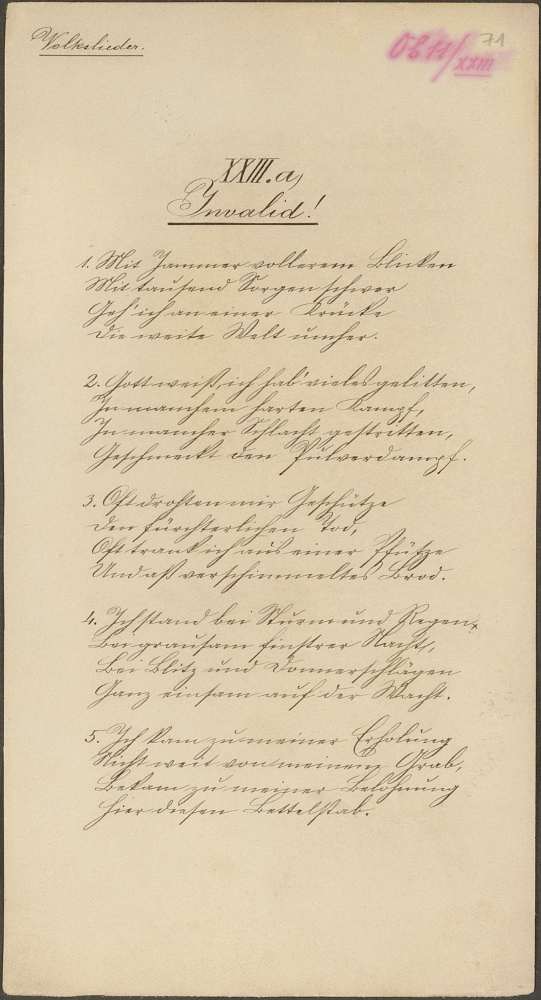 Volkslieder.
Ob 11/XXIII
71
XXIII. a,
Invalid!
1. Mit Jammer vollerem Blicken
Mit tausend Sorgen schwer
Geh' ich an einer Krücke
Die weite Welt umher.
2. Gott weiß, ich hab' vieles gelitten,
In manchem harten Kampf,
In mancher Schlacht gestritten,
Geschmeckt den Pulverdampf.
3. Oft drohten mir Geschütze
Den fürchterlichen Tod,
Oft trank ich aus einer Pfütze
Und aß verschimmeltes Brod.
4. Ich stand bei Sturm und Regen
Bei grausam finstrer Nacht,
Bei Blitz und Donnerschlägen
Ganz einsam auf der Wacht.
5. Ich kam zu meiner Erholung
Nicht weit von meinem Grab,
Bekam zu meiner Belohnung
Hier diesen Bettelstab.